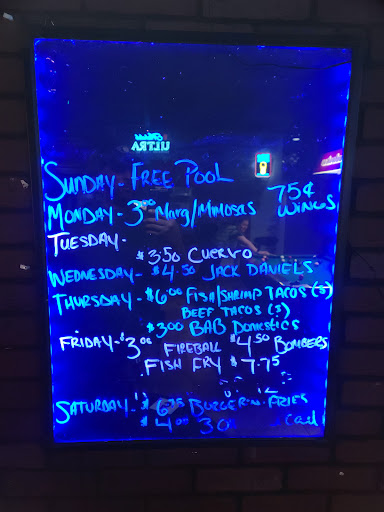 ULTRA
SUNDAY - FREE POOL
MONDAY - 3.00 MARG/MIMOSAS 75¢ WINGS
TUESDAY -
$3.50 CUERVO
WEDNESDAY - $4.50 JACK DANIELS
THURSDAY - $6.00 FISH/SHRIMP TACOS (3)
BEEF TACOS (3)
$3.00 BAB DOMESTICS
FRIDAY - $3.00 FIREBALL $4.50 BOMBERS
FISH FRY $7.75
SATURDAY - $6.75 BURGER-N-FRIES
$4.00 30